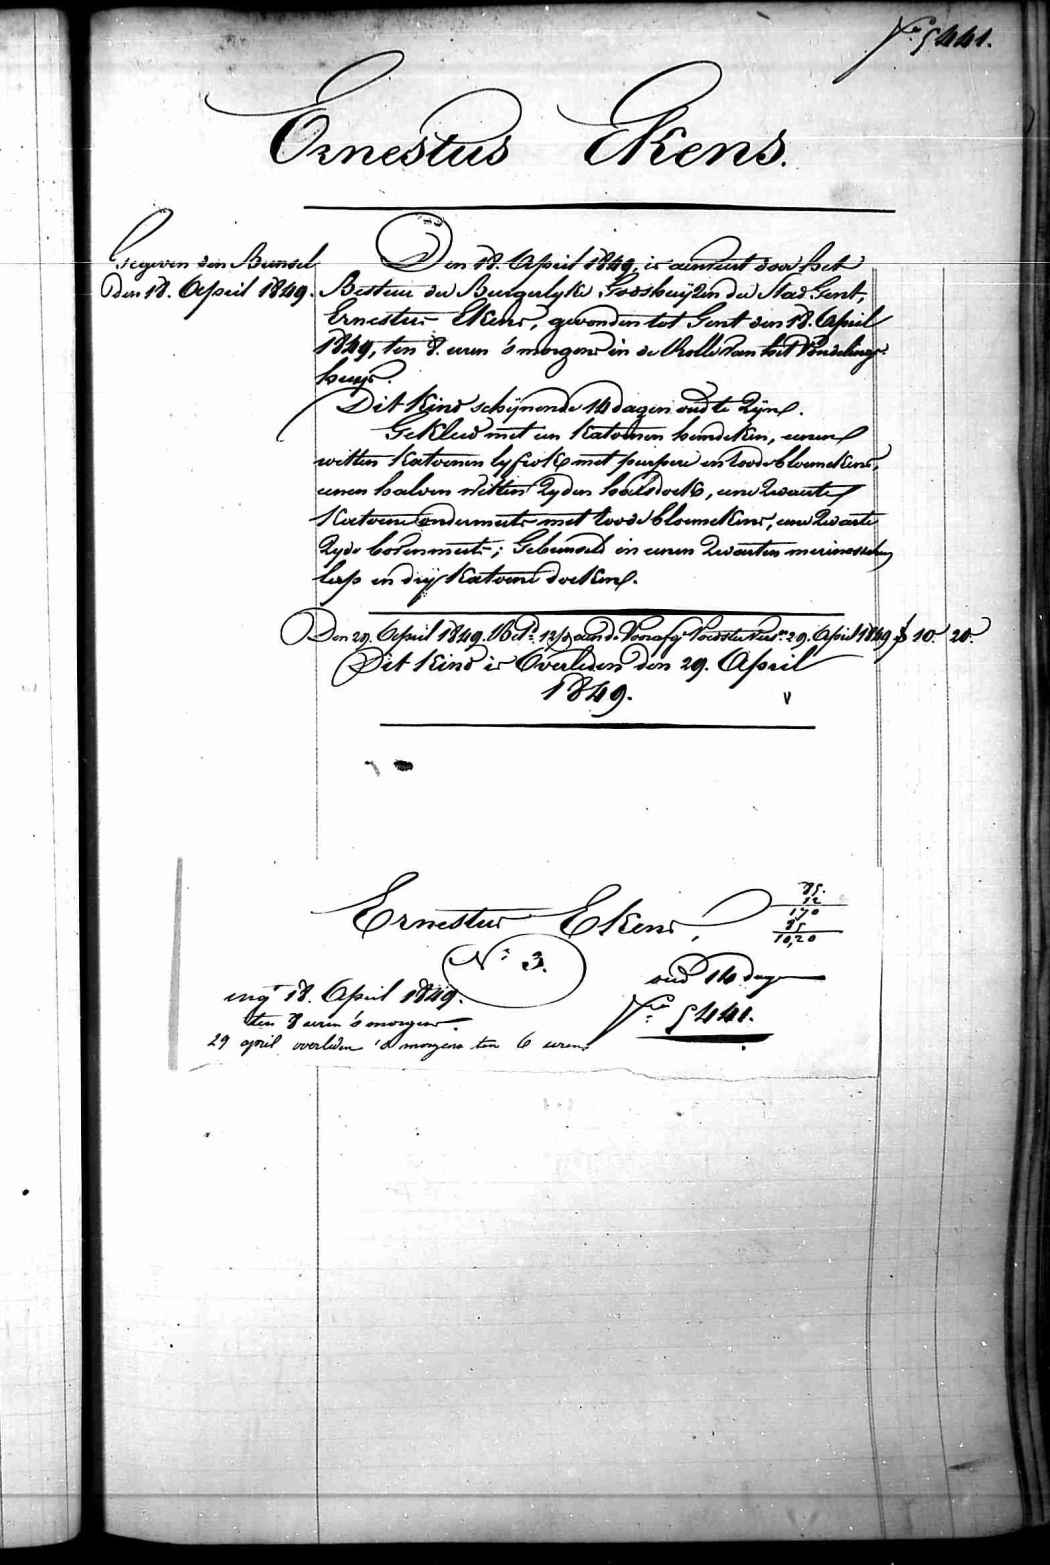 Fo. 5441.
Ernestus Ekens.
Gegeven den Bunsel
den 18. April 1849.
Den 18. April 1849, is aenveert door het
Bestuer der Burgerlyke Godshuijzen der Stad Gent,
Ernestus Ekens, gevonden tot Gent den 18. April
1849, ten 8. uren 's morgens in de Rolle van het Vondelings-
huijs.
Dit Kind schijnende 14 dagen oud te Zijn.
Gekleed met een Katoenen hemdeken, eenen
witten Katoenen lyfrok met purpere en roode bloemekens,
eenen halven witten Zyden halsdoek, eene Zwarte
Katoene ondermuts met roode bloemekens, eene Zwarte
Zyde bovenmuts; Gebunseld in eenen Zwarten merinosschen
lap en dry Katoene doeken.
Den 29. April 1849. Bet. 12/ aende Voorster 29. April 1849 10. 20.
Dit Kind is Overleden den 29. April
1849.
v
Ernestus Ekens,
85.
12
170
85
10,20
No 3.
oud 14 dagen
ing. 18. April 1849.
ten 8 uren 's morgens.
Fo. 5441.
29 april overleden 's morgens ten 6 uren